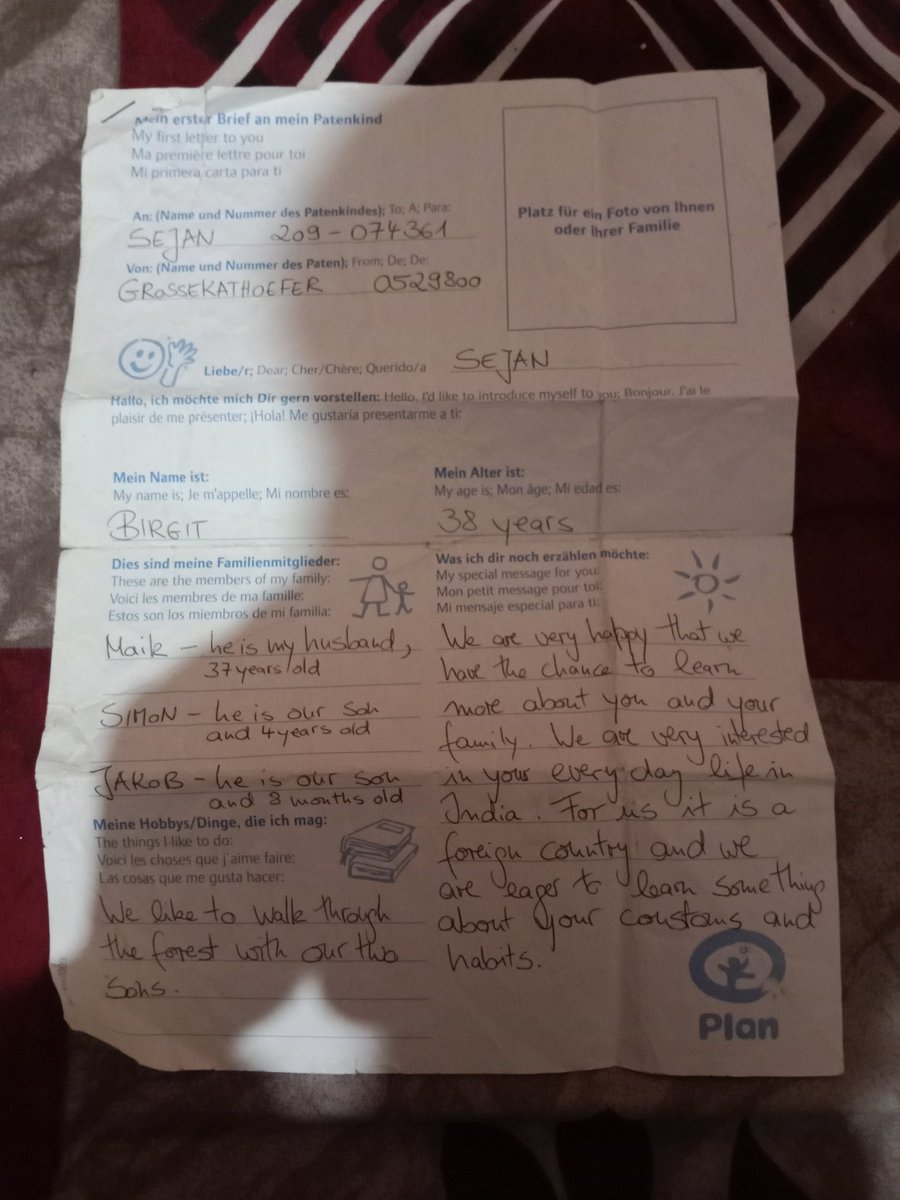 Mein erster Brief an mein Patenkind
My first letter to you
Ma première lettre pour toi
Mi primera carta para ti
An: (Name und Nummer des Patenkindes); To; A; Para:
SEJAN 209-074361
Von: (Name und Nummer des Paten); From; De; De:
GROSSEKATHOEFER 0529800
Platz für ein Foto von Ihnen
oder Ihrer Familie
Liebe/r; Dear; Cher/Chère; Querido/a SEJAN
Hallo, ich möchte mich Dir gern vorstellen: Hello. I'd like to introduce myself to you; Bonjour. J'ai le
plaisir de me présenter; ¡Hola! Me gustaría presentarme a ti:
Mein Name ist:
My name is; Je m'appelle; Mi nombre es:
BIRGIT
Mein Alter ist:
My age is; Mon âge; Mi edad es:
38 years
Dies sind meine Familienmitglieder:
These are the members of my family:
Voici les membres de ma famille:
Estos son los miembros de mi familia:
Maik - he is my husband,
37 years old
SIMON - he is our son
and 4 years old
JAKOB - he is our son
and 8 months old
Meine Hobbys/Dinge, die ich mag:
The things I like to do:
Voici les choses que j'aime faire:
Las cosas que me gusta hacer:
We like to walk through
the forest with our two
sons.
Was ich dir noch erzählen möchte:
My special message for you:
Mon petit message pour toi:
Mi mensaje especial para ti:
We are very happy that we
have the chance to learn
more about you and your
family. We are very interested
in your every day life in
India. For us it is a
foreign country and we
are eager to learn something
about your coustoms and
habits.
Plan